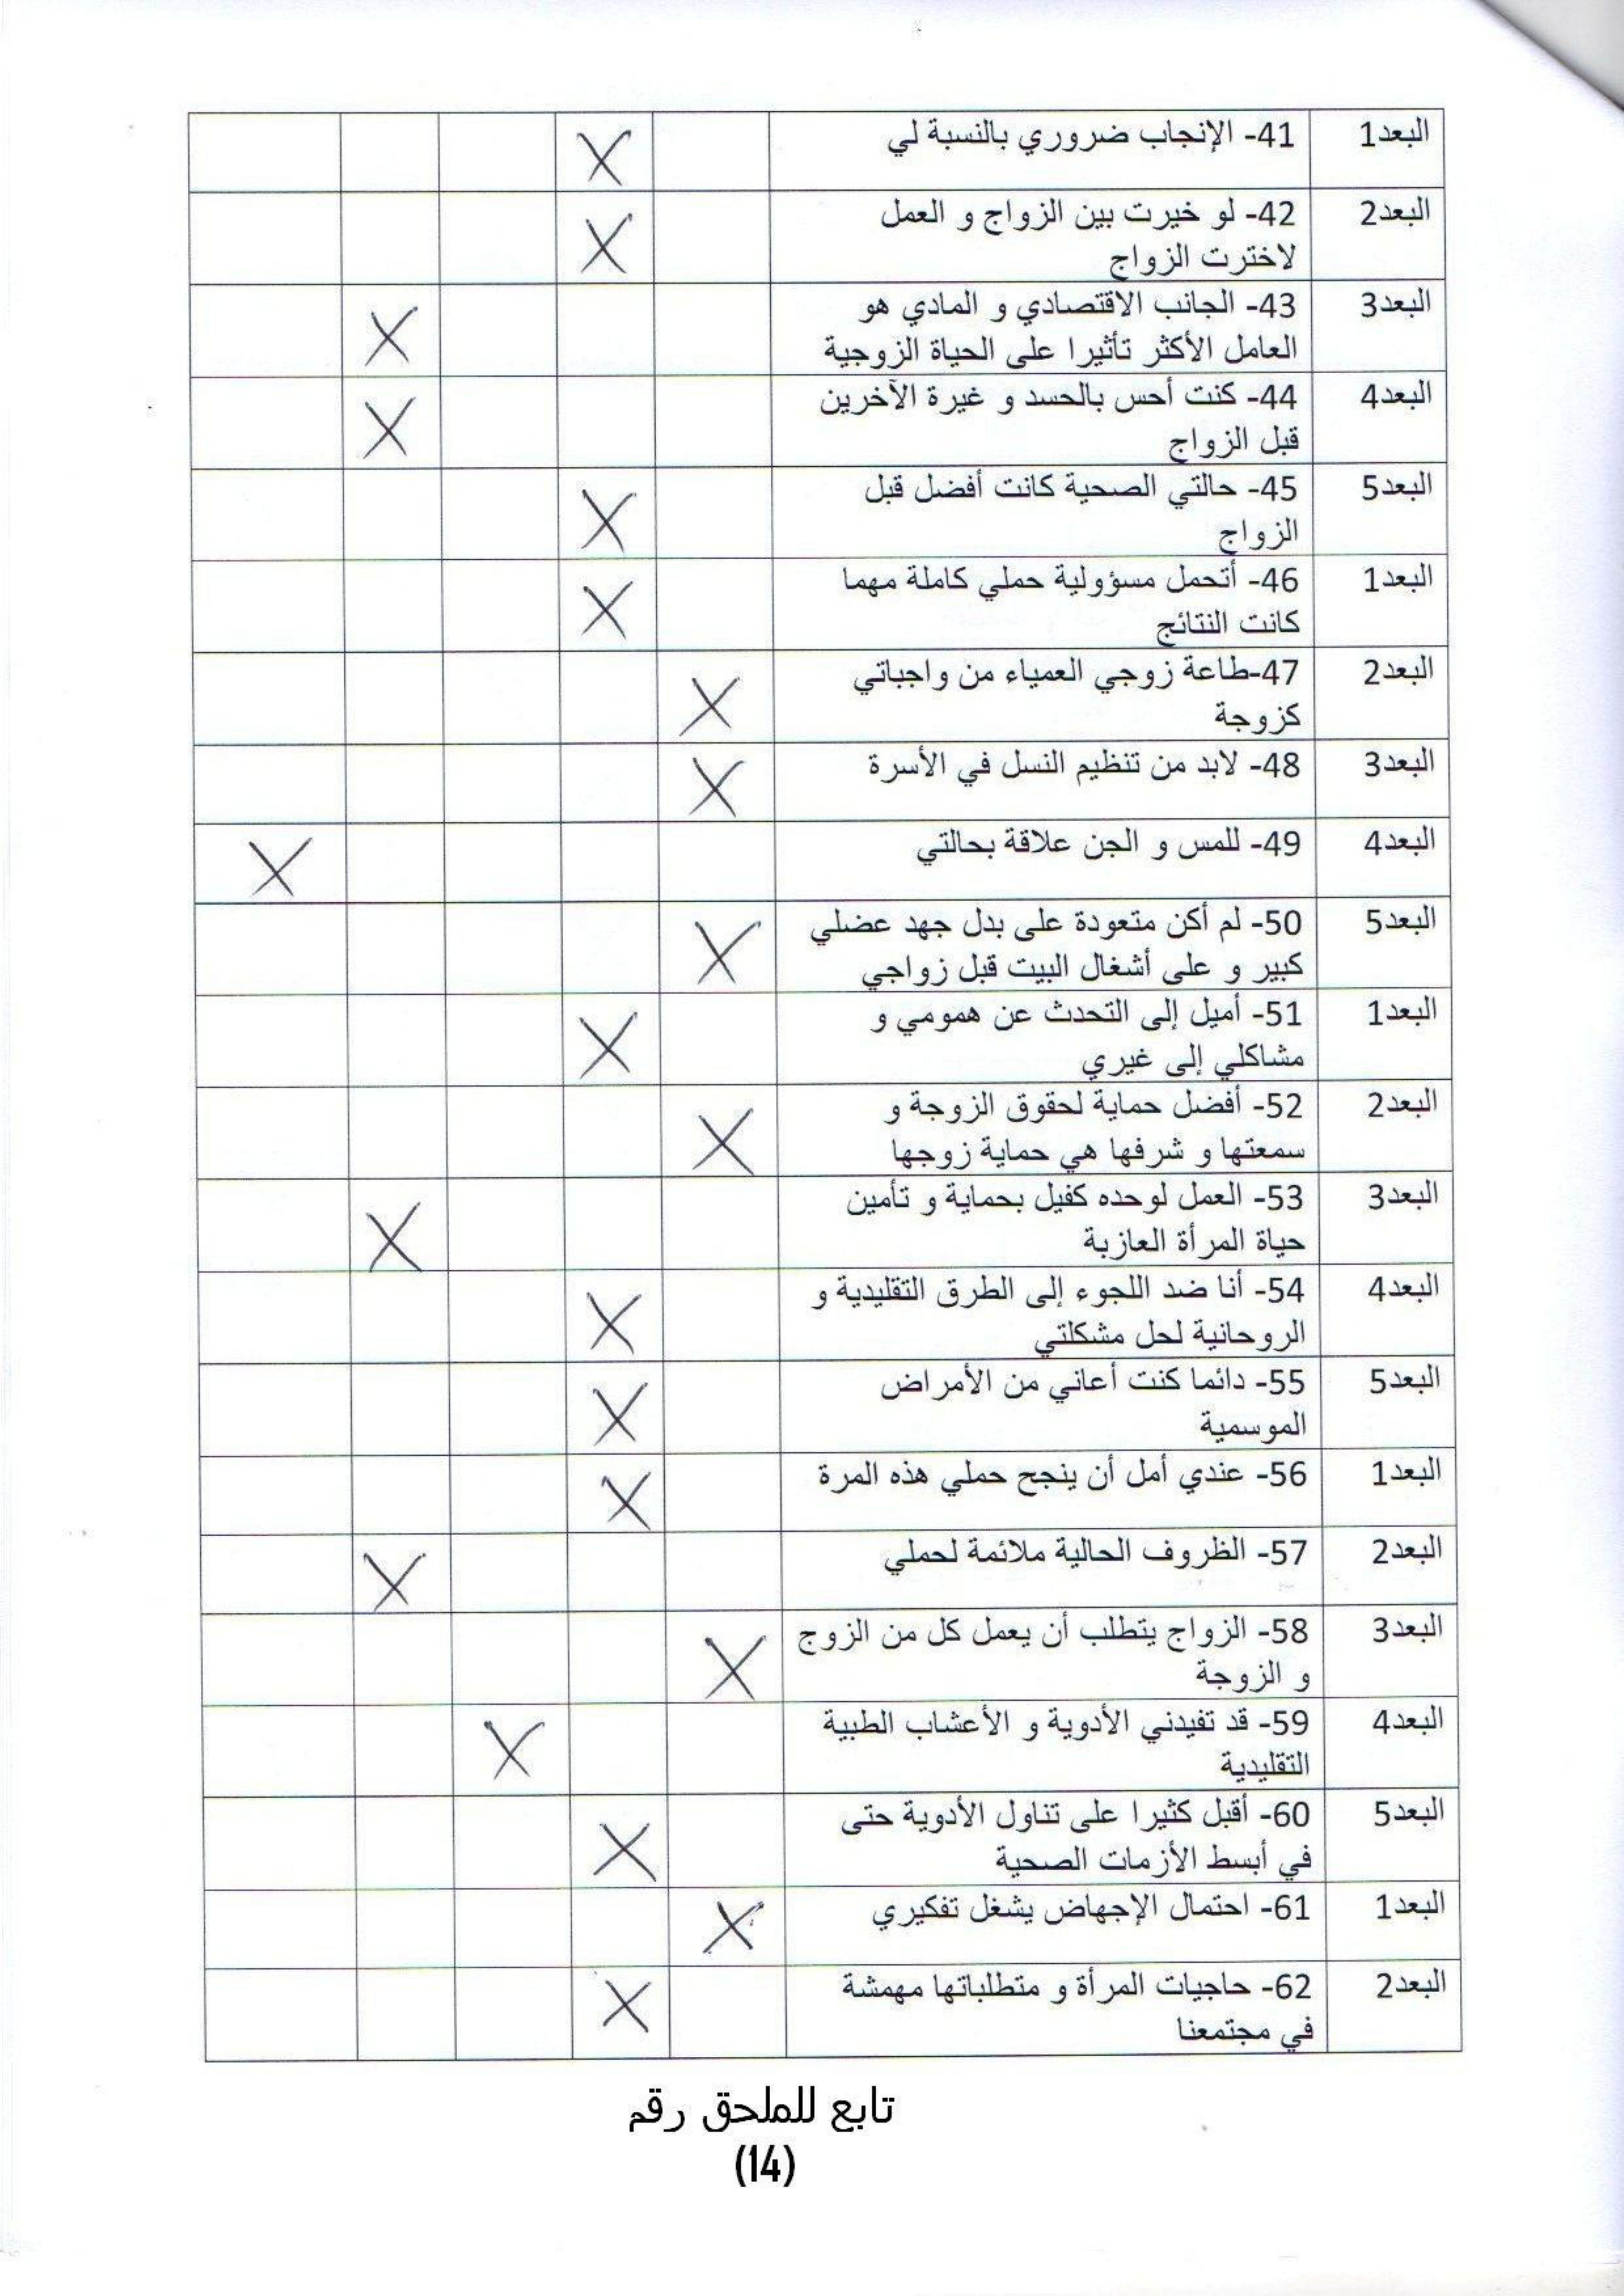 البعد1 41- الإنجاب ضروري بالنسبة لي X
البعد2 42- لو خيرت بين الزواج و العمل
لاخترت الزواج X
البعد3 43- الجانب الاقتصادي و المادي هو
العامل الأكثر تأثيرا على الحياة الزوجية X
البعد4 44- كنت أحس بالحسد و غيرة الآخرين
قبل الزواج X
البعد5 45- حالتي الصحية كانت أفضل قبل
الزواج X
البعد1 46- أتحمل مسؤولية حملي كاملة مهما
كانت النتائج X
البعد2 47-طاعة زوجي العمياء من واجباتي
كزوجة X
البعد3 48- لابد من تنظيم النسل في الأسرة X
البعد4 49- للمس و الجن علاقة بحالتي X
البعد5 50- لم أكن متعودة على بدل جهد عضلي
كبير و على أشغال البيت قبل زواجي X
البعد1 51- أميل إلى التحدث عن همومي و
مشاكلي إلى غيري X
البعد2 52- أفضل حماية لحقوق الزوجة و
سمعتها و شرفها هي حماية زوجها X
البعد3 53- العمل لوحده كفيل بحماية و تأمين
حياة المرأة العازبة X
البعد4 54- أنا ضد اللجوء إلى الطرق التقليدية و
الروحانية لحل مشكلتي X
البعد5 55- دائما كنت أعاني من الأمراض
الموسمية X
البعد1 56- عندي أمل أن ينجح حملي هذه المرة X
البعد2 57- الظروف الحالية ملائمة لحملي X
البعد3 58- الزواج يتطلب أن يعمل كل من الزوج
و الزوجة X
البعد4 59- قد تفيدني الأدوية و الأعشاب الطبية
التقليدية X
البعد5 60- أقبل كثيرا على تناول الأدوية حتى
في أبسط الأزمات الصحية X
البعد1 61- احتمال الإجهاض يشغل تفكيري X
البعد2 62- حاجيات المرأة و متطلباتها مهمشة
في مجتمعنا X
تابع للملحق رقم
(14)